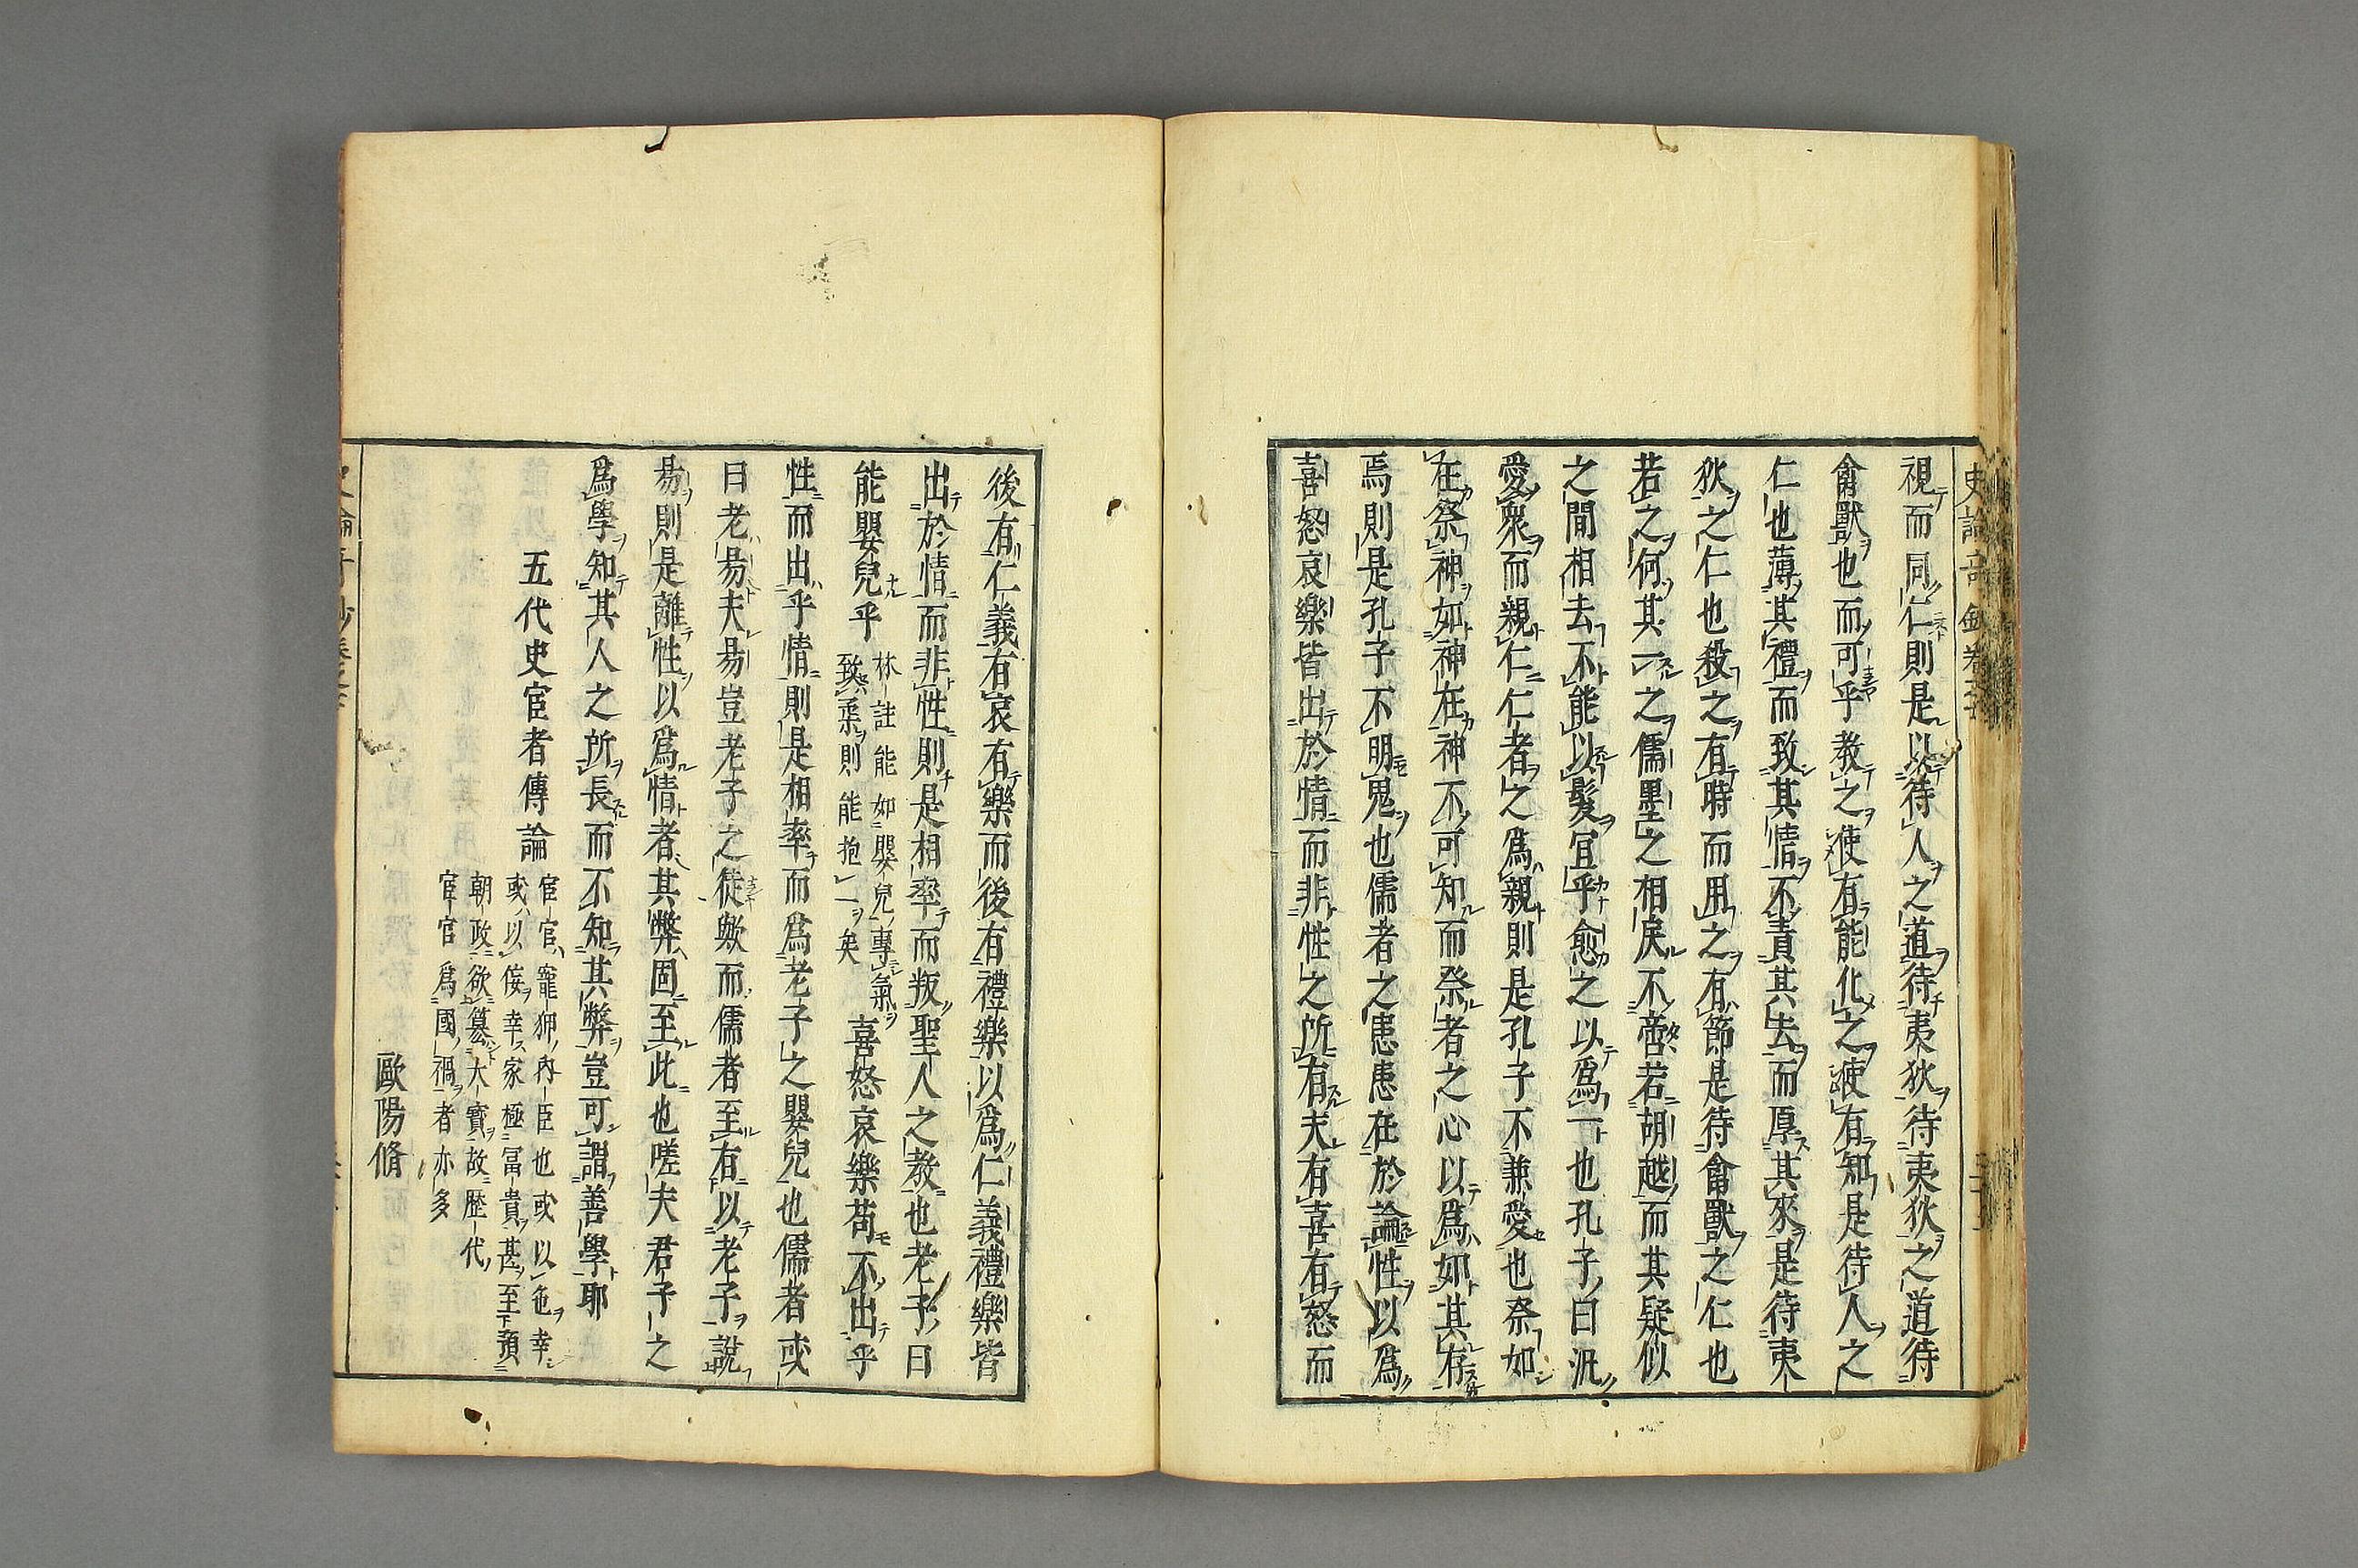 視而同仁則是以待人之道待夷狄待夷狄之道待
禽獸也而可乎教之使有能化之使有知是待人之
仁也薄其禮而致其情不責其去而厚其來是待夷
狄之仁也殺之有時而用之有節是待禽獸之仁也
若之何其一之儒墨之相戾不啻若胡越而其疑似
之間相去不能以髮宜乎愈之以爲一也孔子曰汎
愛衆而親仁仁者之爲親則是孔子不兼愛也祭如
在祭神如神在神不可知而祭者之心以爲如其存
焉則是孔子不明鬼也儒者之患患在於論性以爲
喜怒哀樂皆出於情而非性之所有夫有喜有怒而
後有仁義有哀有樂而後有禮樂以爲仁義禮樂皆
出於情而非性則是相率而叛聖人之教也老子曰
能嬰兒乎
林註能如嬰兒專氣
致柔則能抱一矣
喜怒哀樂苟不出乎
性而出乎情則是相率而爲老子之嬰兒也儒者或
曰老易夫易豈老子之徒歟而儒者至有以老子說
易則是離性以爲情者其弊固至此也嗟夫君子之
爲學知其人之所長而不知其弊豈可謂善學耶
五代史宦者傳論
宦官寵狎內臣也或以色幸
或以佞幸家極冨貴甚至預
朝政欲簒大寶故歷代
宦官爲國禍者亦多
歐陽脩